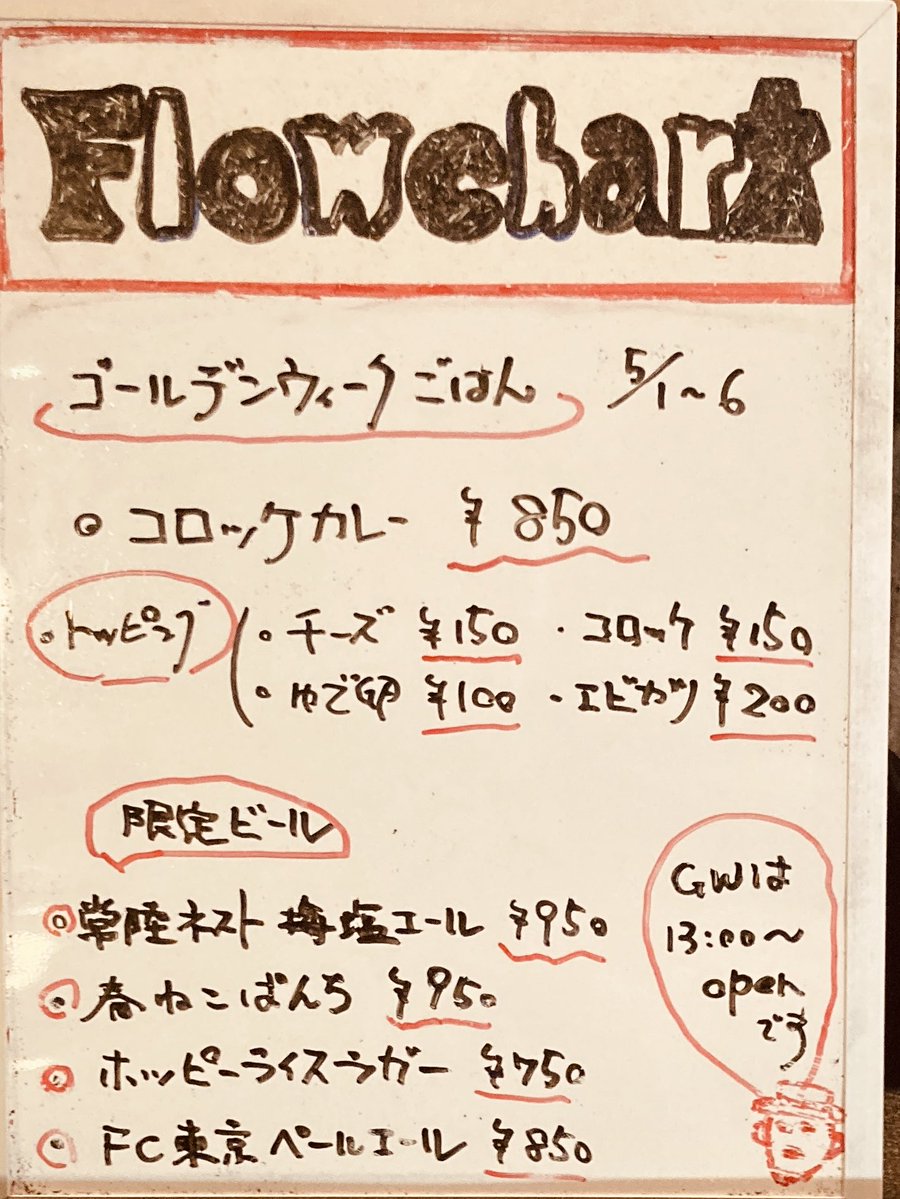 Flowchart
ゴールデンウィークごはん 5/1~6
コロッケカレー ¥850
・トッピング
・チーズ ¥150 ・コロッケ ¥150
・ゆで卵 ¥100 ・エビカツ ¥200
限定ビール
常陸ネスト 梅塩エール ¥950
春ねこばんち ¥950
ホッピーライスラガー ¥750
FC東京ペールエール ¥850
GWは
13:00~
open
です